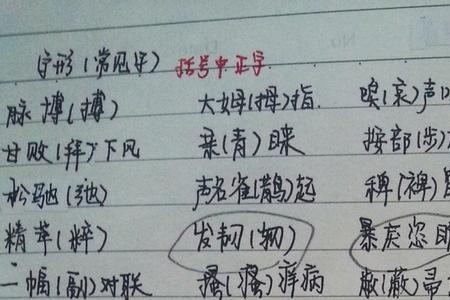 字形(常见字) 括号中正字
脉博(搏) 大姆(拇)指. 唉(哀)声
甘败(拜)下风 亲(青)睐 按部(步)
松驰(弛) 声名雀(鹊)起 稗(裨)
精萃(粹) 发韧(轫) 暴戾恣
一幅(副)对联 搔(瘙)痒病 敝(蔽)帚